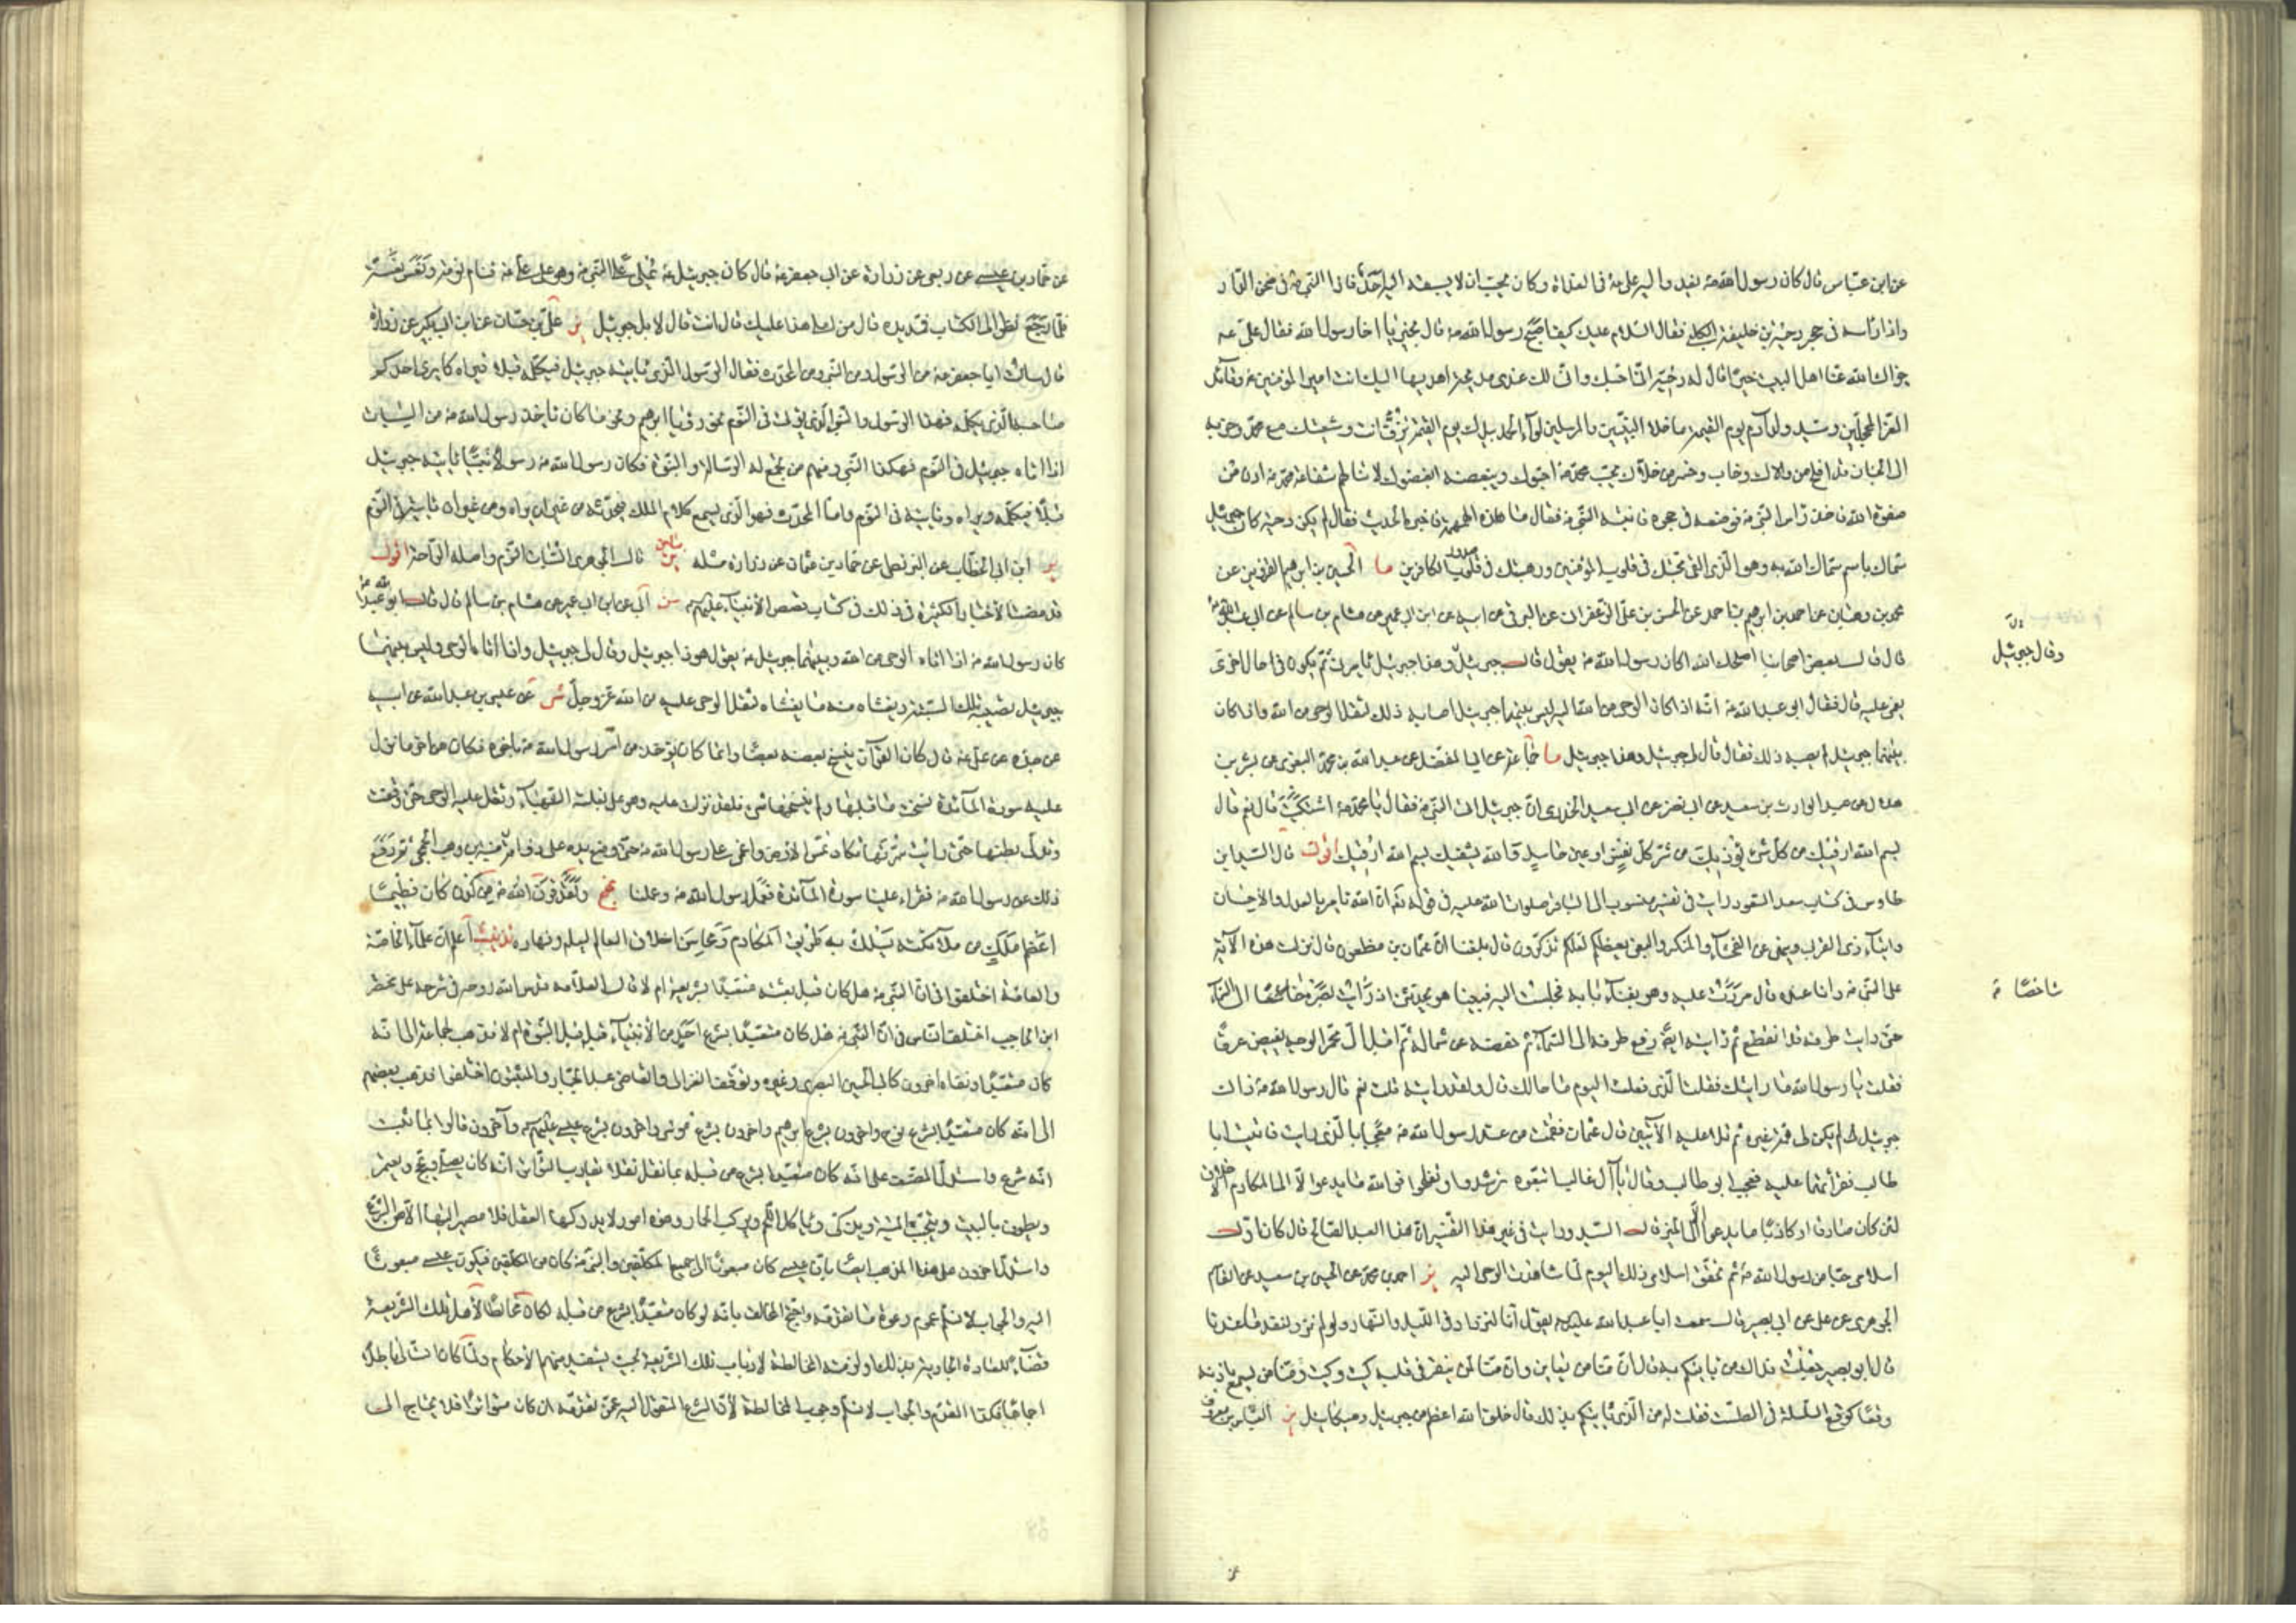 عن ابن عبّاس قال كان رسول الله ص يغدو إليه علي ع في الغداة وكان يحبّ ان لا يسبقه إليه احدٌ فاذا النبي ص في صحن الدار
واذا رأسه في حجر دحية بن خليفة الكلبي فقال السّلام عليك كيف اصبح رسول الله ص قال بخير يا اخا رسول الله فقال علي ع
جزاك الله عنّا اهل البيت خيرًا قال له دحية انّي احبّك وانّ لك عندي مديحة اهديها اليك انت امير المؤمنين وقائد
الغرّ المحجّلين وسيد ولد آدم يوم القيمة ما خلا النبيّين والمرسلين لواء الحمد بيدك يوم القيمة تزفّ انت وشيعتك مع محمّد وحزبه
الى الجنان قد افلح من والاك وخاب وخسر من خلاك بحبّ محمّد احبّوك وببغضه ابغضوك لا تنالهم شفاعة محمّد ص ادن من
صفوة الله فاخذ رأس النبي ص فوضعه في حجره فانتبه النّبي ص فقال ما هذه الهمهمة فاخبره الحديث فقال لم يكن دحية كان جبرئيل
سمّاك باسم سمّاك الله به وهو الّذي القى محبّتك في قلوب المؤمنين ورهبتك في صدور الكافرين ما الحسين بن ابرهيم القزويني عن
محمد بن وهبان عن احمد بن ابرهيم بن احمد عن الحسن بن علي الزعفراني عن البرقي عن ابيه عن ابن ابي عمير عن هشام بن سالم عن ابي عبد الله ع
قال قال بعض اصحابنا اصلحك الله اكان رسول الله ص يقول قال جبرئيل وهذا جبرئيل يأمرني ثمّ يكون في حال اخرى
وقال جبرئيل
يغمى عليه قال فقال ابو عبد الله ع انّه اذا كان الوحي من الله اليه ليس بينهما جبرئيل اصابه ذلك لثقل الوحي من الله واذا كان
بينهما جبرئيل لم يصبه ذلك فقال قال لي جبرئيل وهذا جبرئيل ما جماعة عن ابي المفضل عن عبد الله بن محمّد البغوي عن بشر بن
هلال عن عبد الوارث بن سعيد عن ابي نضرة عن ابي سعيد الخدري انّ جبرئيل اتى النبي ص فقال يا محمّد اشتكيت قال نعم قال
بسم الله ارقيك من كلّ شيء يؤذيك من شرّ كلّ نفس او عين حاسد والله يشفيك بسم الله ارقيك اقول قال السّيد ابن
طاوس في كتاب سعد السعود رايت في تفسير منسوب الى الباقر صلوات الله عليه في قوله تعالى انّ الله يأمر بالعدل والاحسان
وايتاء ذي القربى وينهى عن الفحشاء والمنكر والبغي يعظكم لعلّكم تذكّرون قال بلغنا انّ عثمان بن مظعون قال نزلت هذه الآية
على النبي ص وانا عنده قال مررت عليه وهو بفناء بابه فجلست اليه فبينا هو يحدّثني اذ رأيت بصره شاخصًا الى السّماء
شاخصًا
حتّى رايت طرفه قد انقطع ثم رايته خفضه حتى وضعه عن يمينه ثم رفع طرفه الى السّماء ثم خفضه عن شماله ثم اقبل اليّ محمرّ الوجه يفيض عرقًا
فقلت يا رسول الله ما رايتك فعلت الّذي فعلت اليوم ما حالك قال ولقد رايته قلت نعم قال رسول الله ص ذاك
جبرئيل لم يكن لي همّة غيره ثم تلا عليه الآيتين قال عثمان فقمت من عند رسول الله ص معجبًا بالّذي رايت فاتيت ابا
طالب فقرأتهما عليه فعجب ابو طالب وقال يا آل غالب اتّبعوه ترشدوا وتفلحوا فوالله ما يدعو الّا الى مكارم الاخلاق
لئن كان صادقا او كاذبًا ما يدعو الّا الى الخير قال السّيد ورايت في غير هذا التّفسير انّ هذا العبد الصّالح قال كان اوّل
اسلامي حبّا من رسول الله ص ثم تحقّق اسلامي ذلك اليوم لمّا شاهدت الوحي اليه ير احمد بن محمّد عن الحسين بن سعيد عن القاسم
الجوهري عن علي عن ابي بصير قال سمعت ابا عبد الله عليه السلام يقول انّا لنزاد في اللّيل والنّهار ولو لم نزد لنفد ما عندنا
قال ابو بصير جعلت فداك من يأتيكم به قال انّ منّا من يعاين وانّ منّا لمن ينقر في قلبه كيت وكيت ومنّا من يسمع باذنه
وقعًا كوقع السّلسلة في الطّست فقلت له من الّذي يأتيكم بذلك قال خلق لله اعظم من جبرئيل وميكائيل ير العبّاس بن معروف
عن حمّاد بن عيسى عن ربعي عن زرارة عن ابي جعفر ع قال كان جبرئيل ع يملي على النّبي ص وهو يملي على علي ع فنام نومة ونعس نعسة
فلمّا رجع نظر الى الكتاب فمدّ يده قال من املى هذا عليك قال انت قال لا بل جبرئيل ير علي بن حسّان عن ابن ابي بكير عن زرارة
قال سالت ابا جعفر ع من الرّسول ومن النّبي ومن المحدّث فقال الرّسول الّذي يأتيه جبرئيل فيكلّمه قبلًا فيراه كما يرى احدكم
صاحبه الّذي يكلّمه فهذا الرّسول والنّبي الّذي يؤتى في النّوم نحو رؤيا ابرهيم ونحو ما كان يأخذ رسول الله ص من السّبات
اذا اتاه جبرئيل في النّوم فهكذا النّبي ومنهم من يجمع له الرّسالة والنّبوّة فكان رسول الله ص رسولًا نبيًّا يأتيه جبرئيل
قبلًا فيكلّمه ويراه ويأتيه في النّوم وامّا المحدّث فهو الّذي يسمع كلام الملك فيحدّثه من غير ان يراه ومن غير ان يأتيه في النّوم
ير ابن ابي الخطّاب عن البزنطي عن حمّاد بن عثمان عن زرارة مثله بيان قال الجوهري السّبات النّوم واصله الرّاحة اقول
قد مضت الاخبار الكثيرة في ذلك في كتاب قصص الأنبياء عليهم السلام سن ابي عن ابن ابي عمير عن هشام بن سالم قال قال ابو عبد الله ع
كان رسول الله ص اذا اتاه الوحي من الله وبينهما جبرئيل ع يقول هوذا جبرئيل وقال لي جبرئيل واذا اتاه الوحي وليس بينهما
جبرئيل تصيبه تلك السّبتة ويغشاه منه ما يغشاه لثقل الوحي عليه من الله عزّ وجلّ شي عن عيسى بن عبد الله عن ابيه
عن جدّه عن علي ع قال كان القرآن ينسخ بعضه بعضًا وانّما كان يؤخذ من امر رسول الله ص بآخره فكان من آخر ما نزل
عليه سورة المائدة نسخت ما قبلها ولم ينسخها شيء فلقد نزلت عليه وهو على بغلته الشهباء وثقل عليه الوحي حتّى وقفت
وتدلّى بطنها حتّى رايت سرّتها تكاد تمسّ الأرض واغمي على رسول الله ص حتّى وضع يده على ذؤابة منبّه بن وهب الجمحي ثمّ رفع
ذلك عن رسول الله ص فقرأ علينا سورة المائدة فعمل رسول الله ص وعملنا نهج ولقد قرن الله ص من لدن كان فطيمًا
اعظم ملك من ملائكته يسلك به طريق المكارم ومحاسن اخلاق العالم ليله ونهاره تذنيب اعلم انّ علماء الخاصّة
والعامّة اختلفوا في انّ النّبي ص هل كان قبل بعثته متعبّدًا بشريعة ام لا قال العلّامة قدّس الله روحه في شرحه على مختصر
ابن الحاجب اختلف النّاس في انّ النّبي ص هل كان متعبّدًا بشرع احد من الأنبياء قبله قبل النّبوّة ام لا فذهب جماعة الى انّه
كان متعبّدًا ونفاه آخرون كابي الحسين البصري وغيره وتوقّف الغزالي والقاضي عبد الجبّار والمثبتون اختلفوا فذهب بعضهم
الى انّه كان متعبّدًا بشرع نوح وآخرون بشرع ابرهيم وآخرون بشرع موسى وآخرون بشرع عيسى عليهم السلام وآخرون قالوا بما ثبت
انّه شرع واستدلّ المصنّف على انّه كان متعبّدا بشرع من قبله بما نقل نقلًا يقارب التّواتر انّه كان يصلّي ويحجّ ويعتمر
ويطوف بالبيت ويتجنّب الميتة ويذكّي ويأكل اللّحم ويركب الحمار وهذه امور لا يدركها العقل فلا مصير اليها الّا من الشّرع
واستدلّ آخرون على هذا المذهب ايضًا بانّ عيسى كان مبعوثًا الى جميع المكلّفين والنّبي ص كان من المكلّفين فيكون عيسى مبعوثًا
اليه والجواب لا نسلّم عموم دعوة من تقدّمه واحتجّ المخالف بانّه لو كان متعبّدًا بشرع من قبله لكان مخالطًا لأهل تلك الشّريعة
قضاءً للعادة الجارية بذلك او لزمته المخالطة لارباب تلك الشّريعة بحيث يستفيد منهم الأحكام ولمّا كان التّالي باطلًا
اجماعًا فكذا المقدّم والجواب لا نسلّم وجوب المخالطة لأنّ الشرع المنقول اليه عمّن تقدّمه ان كان متواترًا فلا يحتاج الى